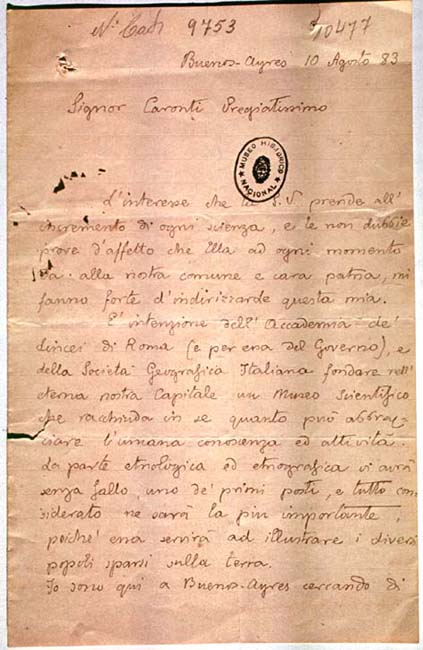 9753
10477
Buenos-Ayres 10 Agosto 83
Signor Caronti Pregiatissimo
MUSEO HISTORICO
NACIONAL
L'interesse che la S.V. prende all'
incremento di ogni scienza, e le non dubbie
prove d'affetto che Ella ad ogni momento
da alla nostra comune e cara patria, mi
fanno forte d'indirizzarle questa mia.
E' intenzione dell' Accademia de'
Lincei di Roma (e per essa del Governo), e
della Società Geografica Italiana fondare nell'
eterna nostra Capitale un Museo Scientifico
che racchiuda in se quanto può abbrac
ciare l'umana conoscenza ed attività.
La parte etnologica ed etnografica vi avrà
senza fallo, uno de' primi posti, e tutto con
siderato ne sarà la più importante,
poichè essa servirà ad illustrare i diversi
popoli sparsi sulla terra.
Io sono qui a Buenos-Ayres cercando di